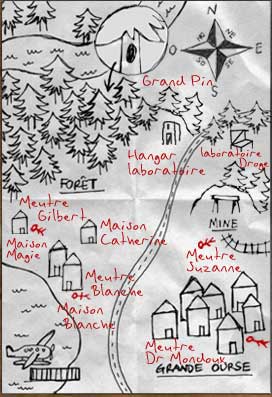 N
O
E
S
NO
NE
SO
SE
Grand Pin
Hangar
laboratoire
laboratoire
Droge
FORÊT
Meutre
Gilbert
Maison
Catherine
Maison
Magie
MINE
Meutre
Suzanne
Meutre
Blanche
Maison
Blanche
Meutre
Dr Mondoux
GRANDE OURSE